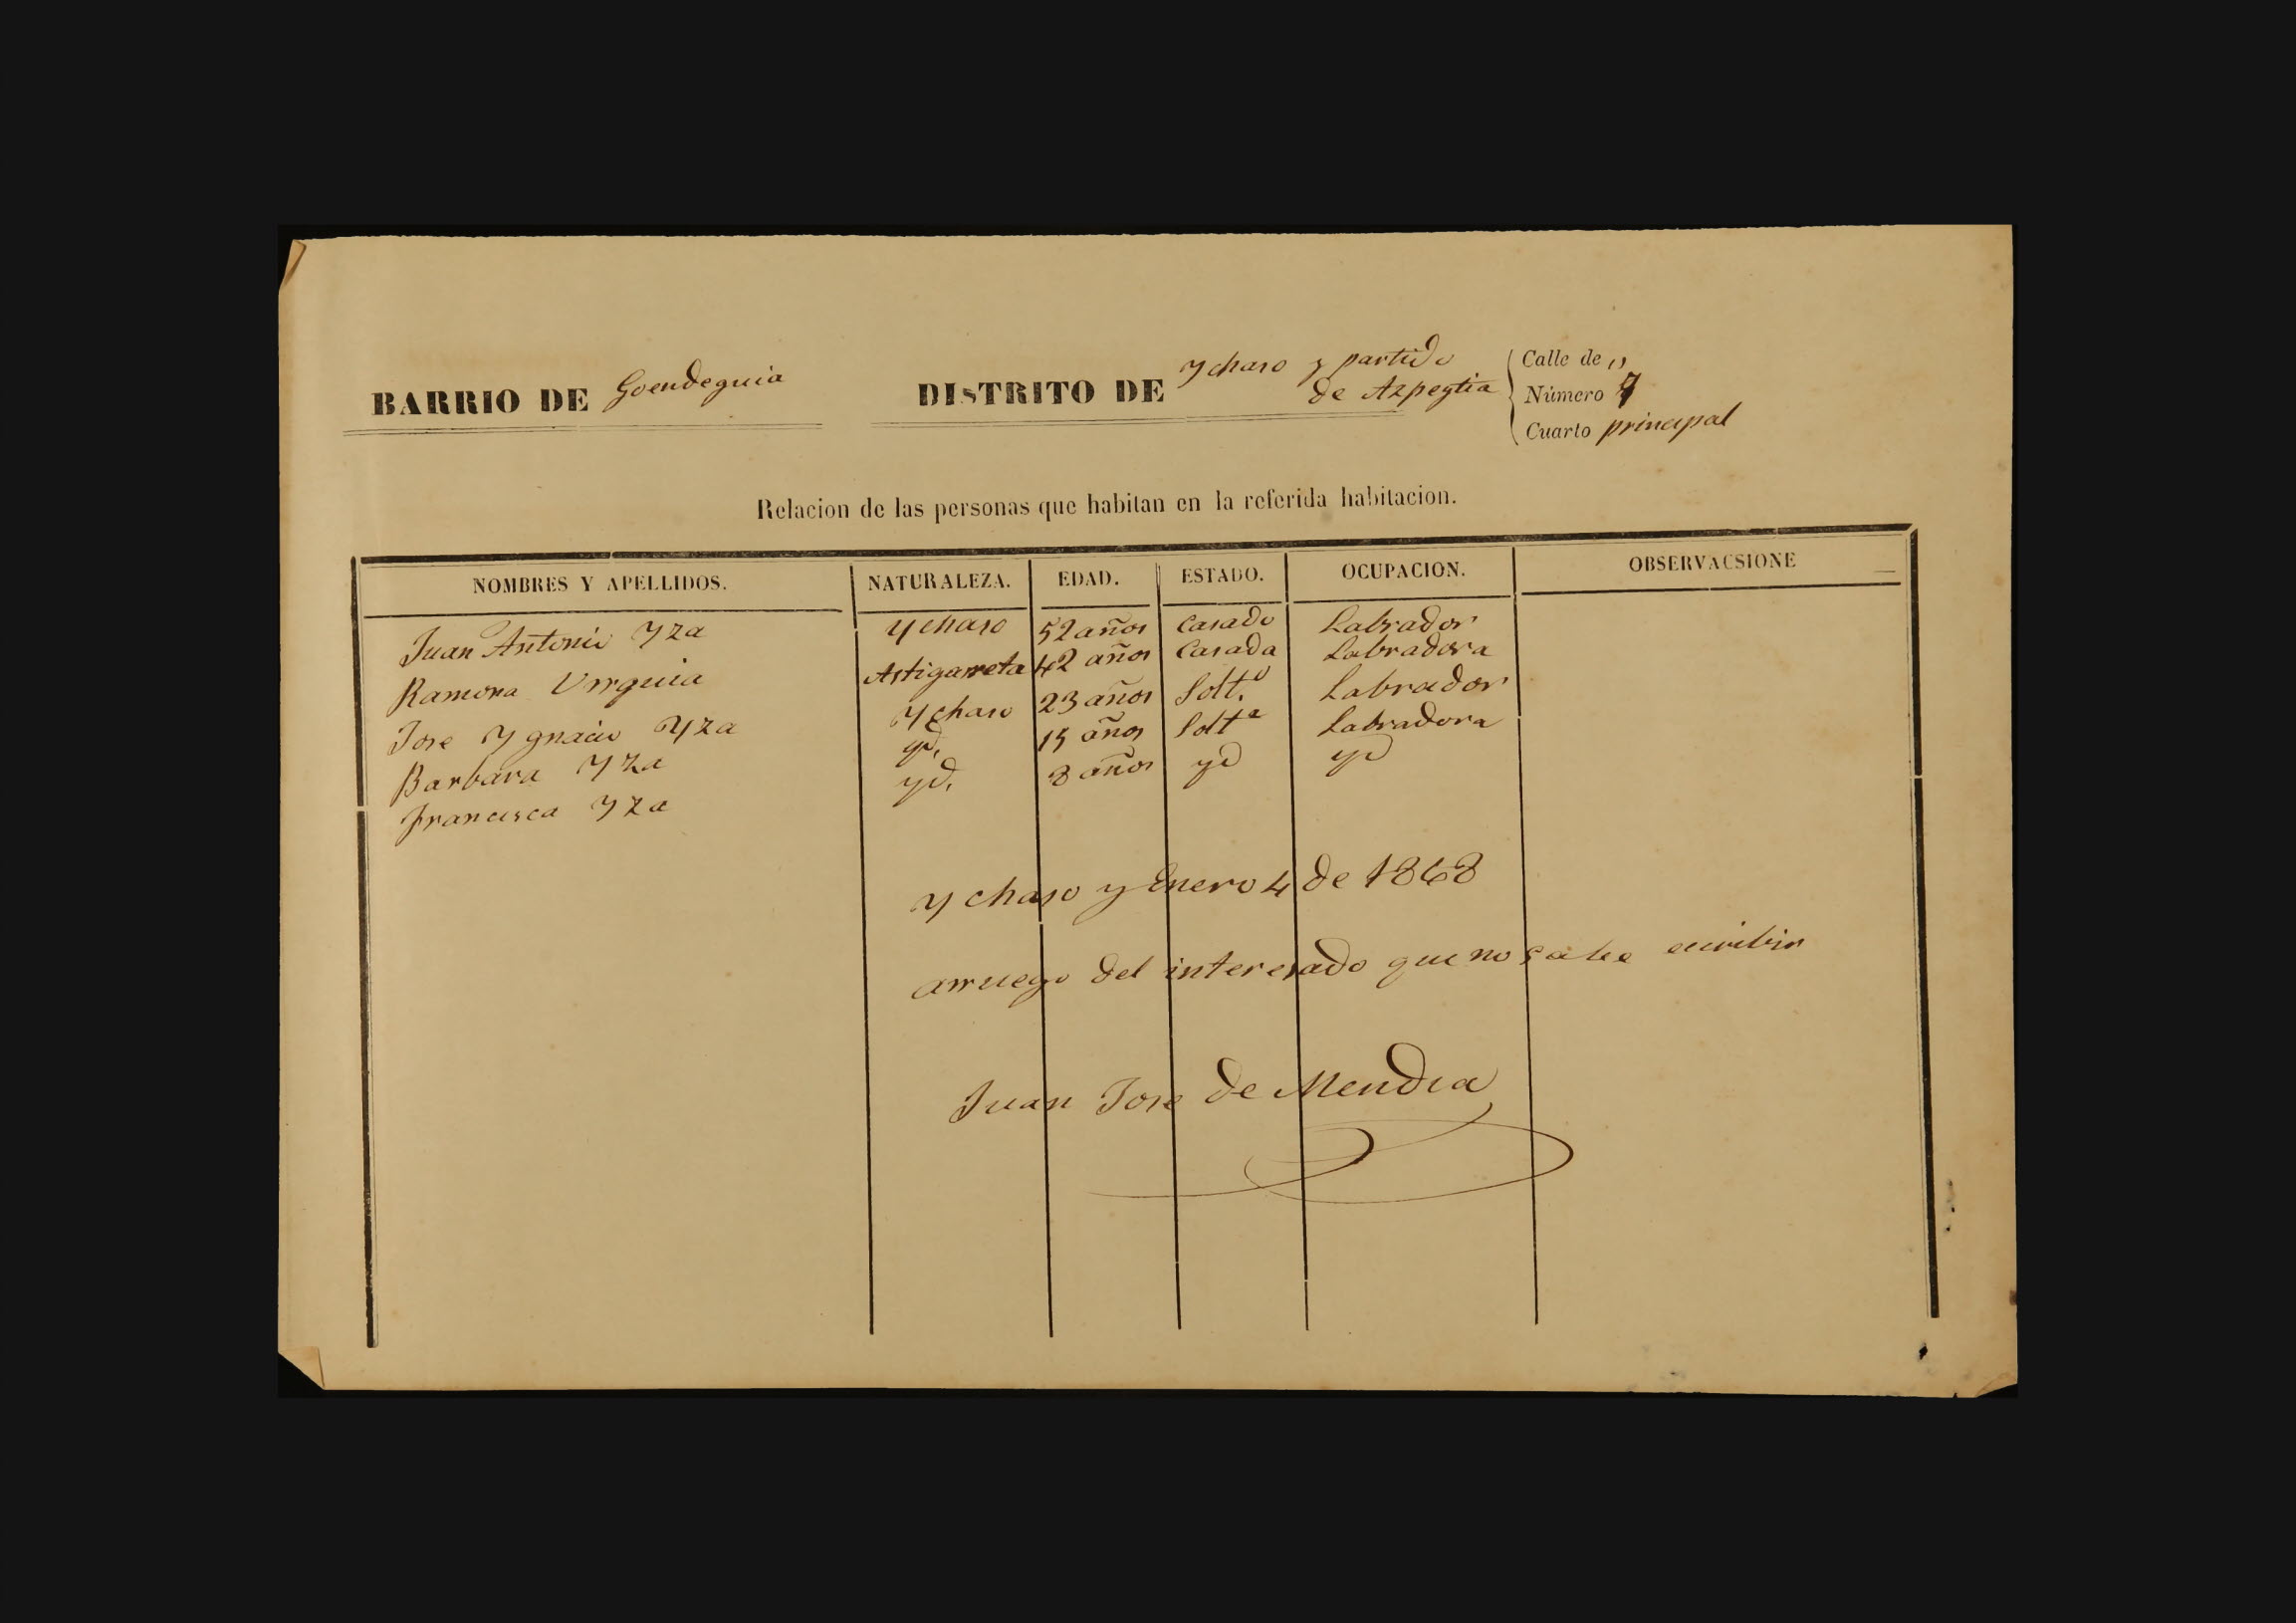 BARRIO DE Goendeguia
DISTRITO DE Ychaso y partido
de Azpeytia
Calle de "
Número 7
Cuarto principal
Relacion de las personas que habitan en la referida habitacion.
NOMBRES Y APELLIDOS. NATURALEZA. EDAD. ESTADO. OCUPACION. OBSERVACSIONE
Juan Antonio Yza Ychaso 52 años Casado Labrador
Ramona Urquia Astigarreta 42 años Casada Labradora
Jose Ygnacio Yza Ychaso 23 años Solt.o Labrador
Barbara Yza yd. 15 años Solta Labradora
Francisca Yza yd. 8 años yd yd
Ychaso y Enero 4 de 1868
arruego del interesado que no sabe escribir
Juan Jose de Mendia